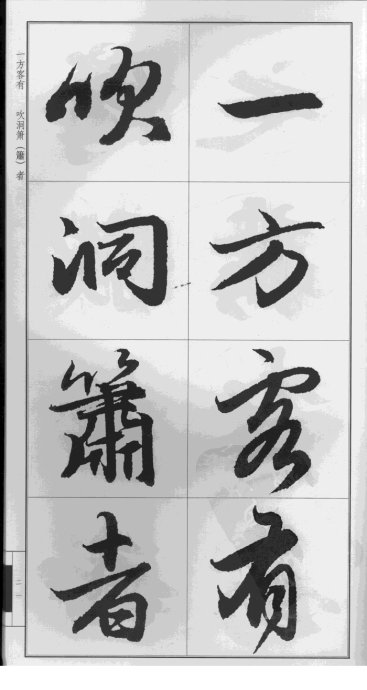 一方客有
吹洞簫者
一方客有 吹洞箫（簫）者